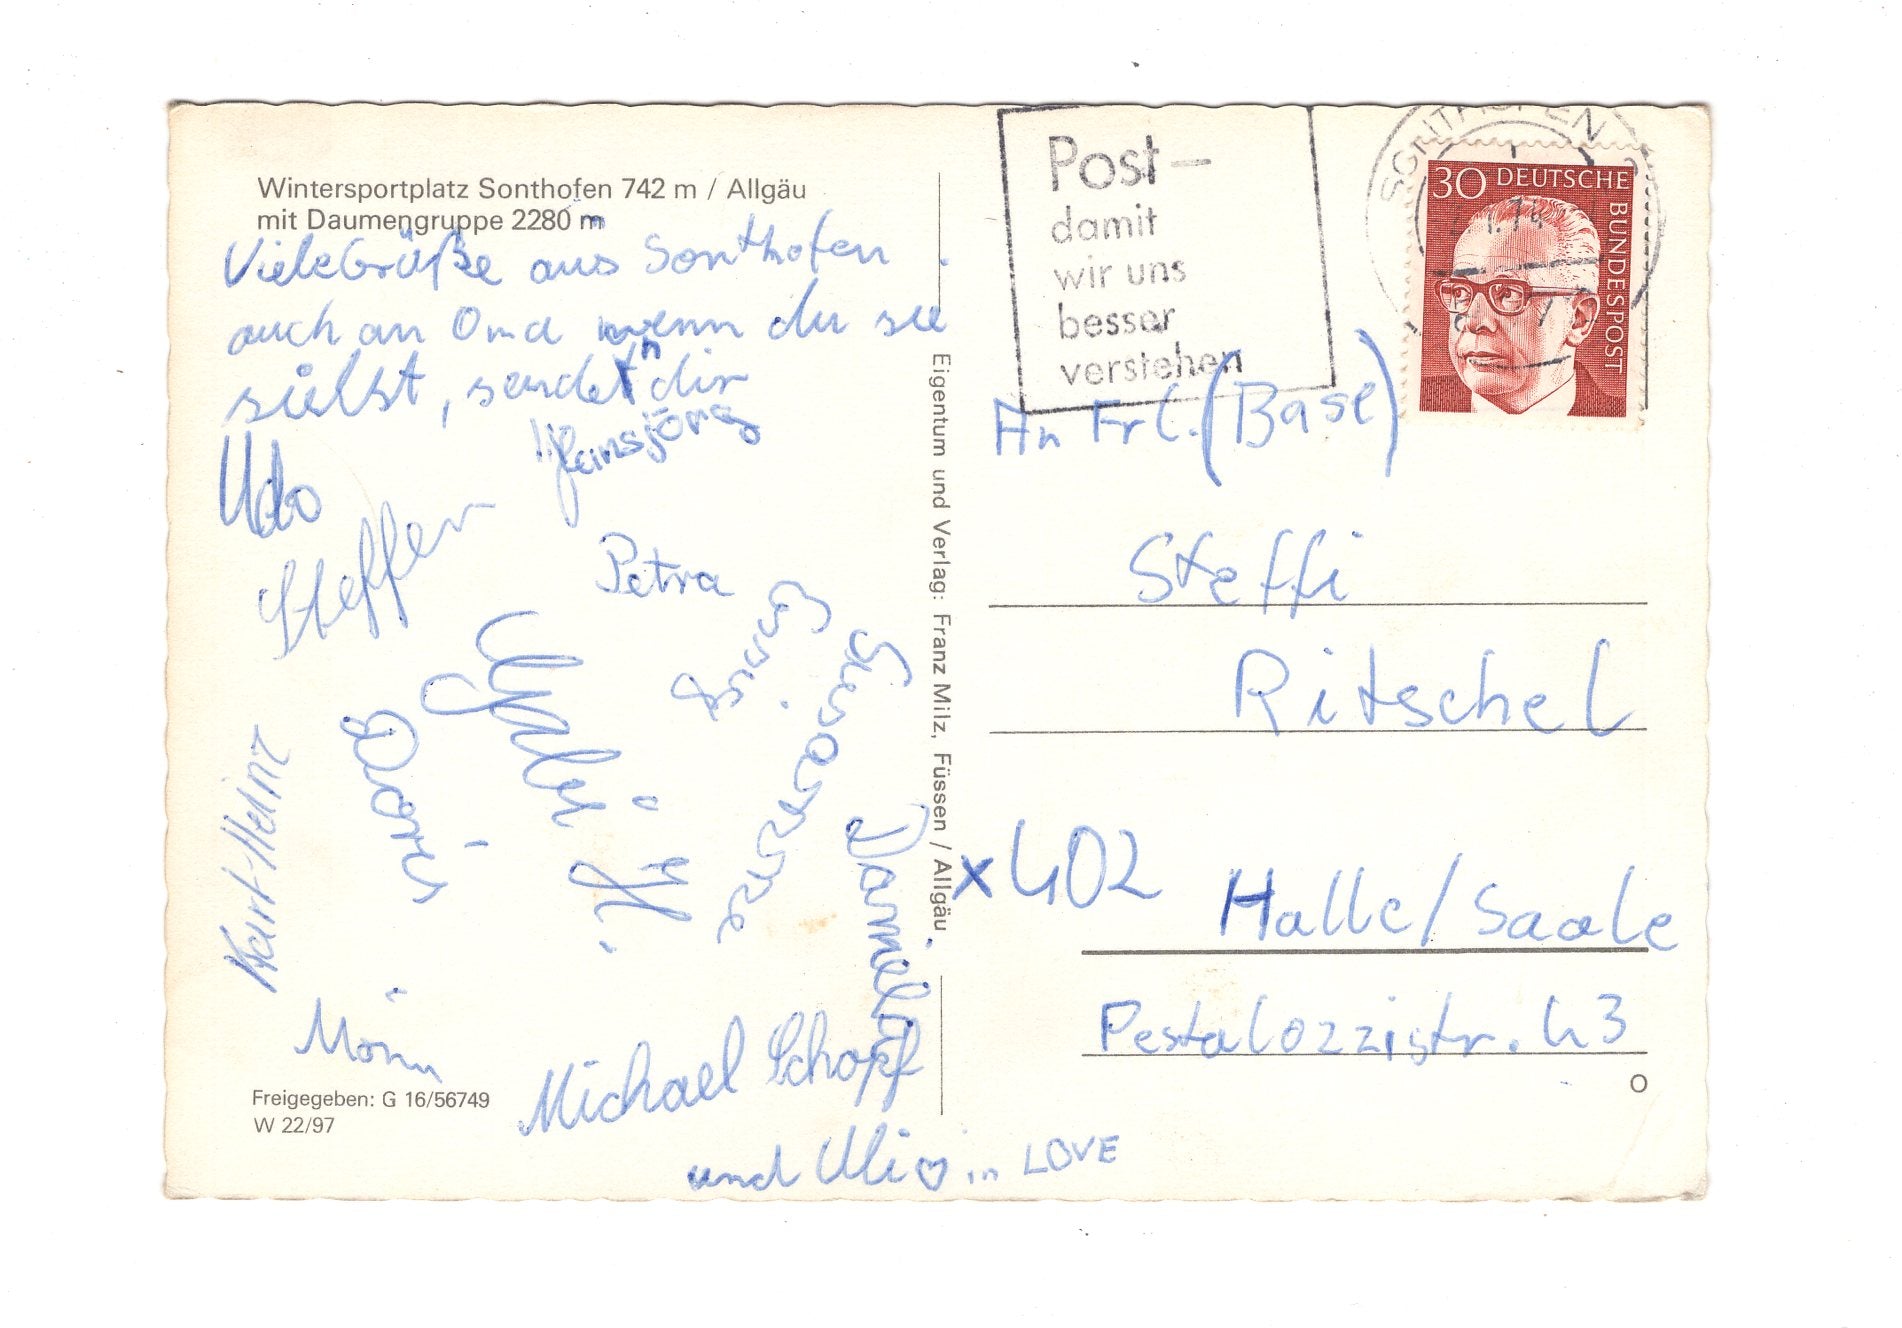 Wintersportplatz Sonthofen 742 m / Allgäu
mit Daumengruppe 2280 m
Viele Grüße aus Sonthofen
auch an Oma wenn du sie
siehst, senden dir
Udo
Heinsjörg
Steffen
Petra
Conny
Susanne
Gabi
Doris
Karl-Heinz
Daniela
Michael Schopf
und Uli ♡ in LOVE
Freigegeben: G 16/56749
W 22/97
Eigentum und Verlag: Franz Milz, Füssen / Allgäu
Post –
damit
wir uns
besser
verstehen
SONTHOFEN
30 DEUTSCHE
BUNDESPOST
An Frl. (Base)
Steffi
Ritschel
x 402 Halle/Saale
Pestalozzistr. 43